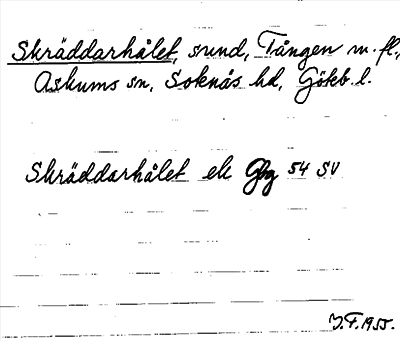 Skräddarhålet, sund, Tången m. fl.,
Askums sn, Sotenäs hd, Göteb. l.
Skräddarhålet ek Gbg 54 SV
J.F. 1955.